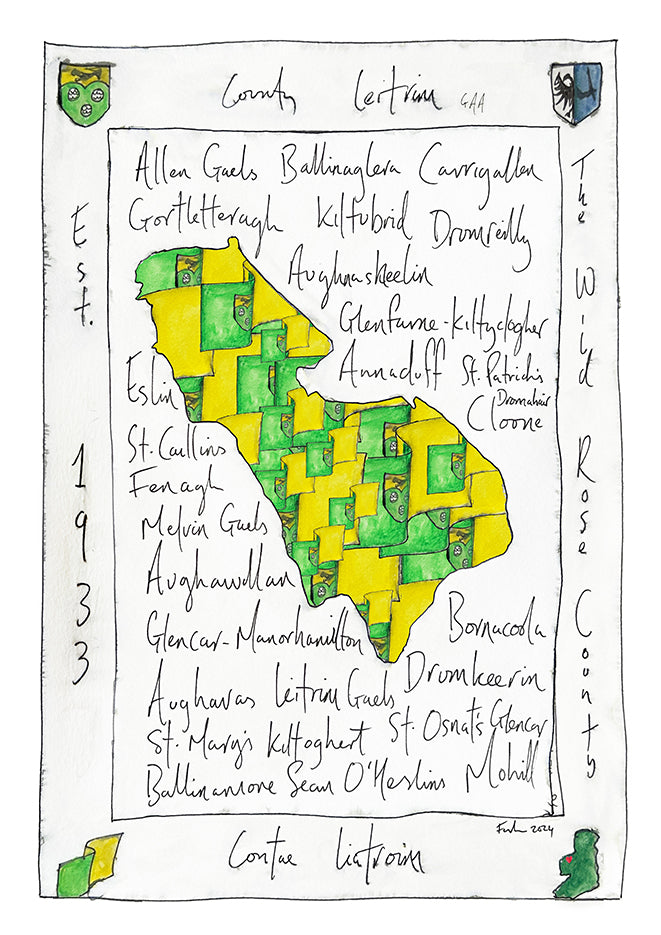 County Leitrim GAA
Allen Gaels Ballinaglera Carrigallen
Gortletteragh Kiltubrid Dromreilly
Aughnasheelin
Glenfarne-Kiltyclogher
Annaduff St. Patrick's
Dromahair
Eslin
Cloone
St. Caillins
Fenagh
Melvin Gaels
Aughawillan
Glencar-Manorhamilton
Bornacoola
Aughavas Leitrim Gaels Drumkeerin
St. Mary's Kiltoghert St. Osnat's Glencar
Ballinamore Sean O'Heslins Mohill
Est. 1933
The Wild Rose County
2024
Contae Liatroim